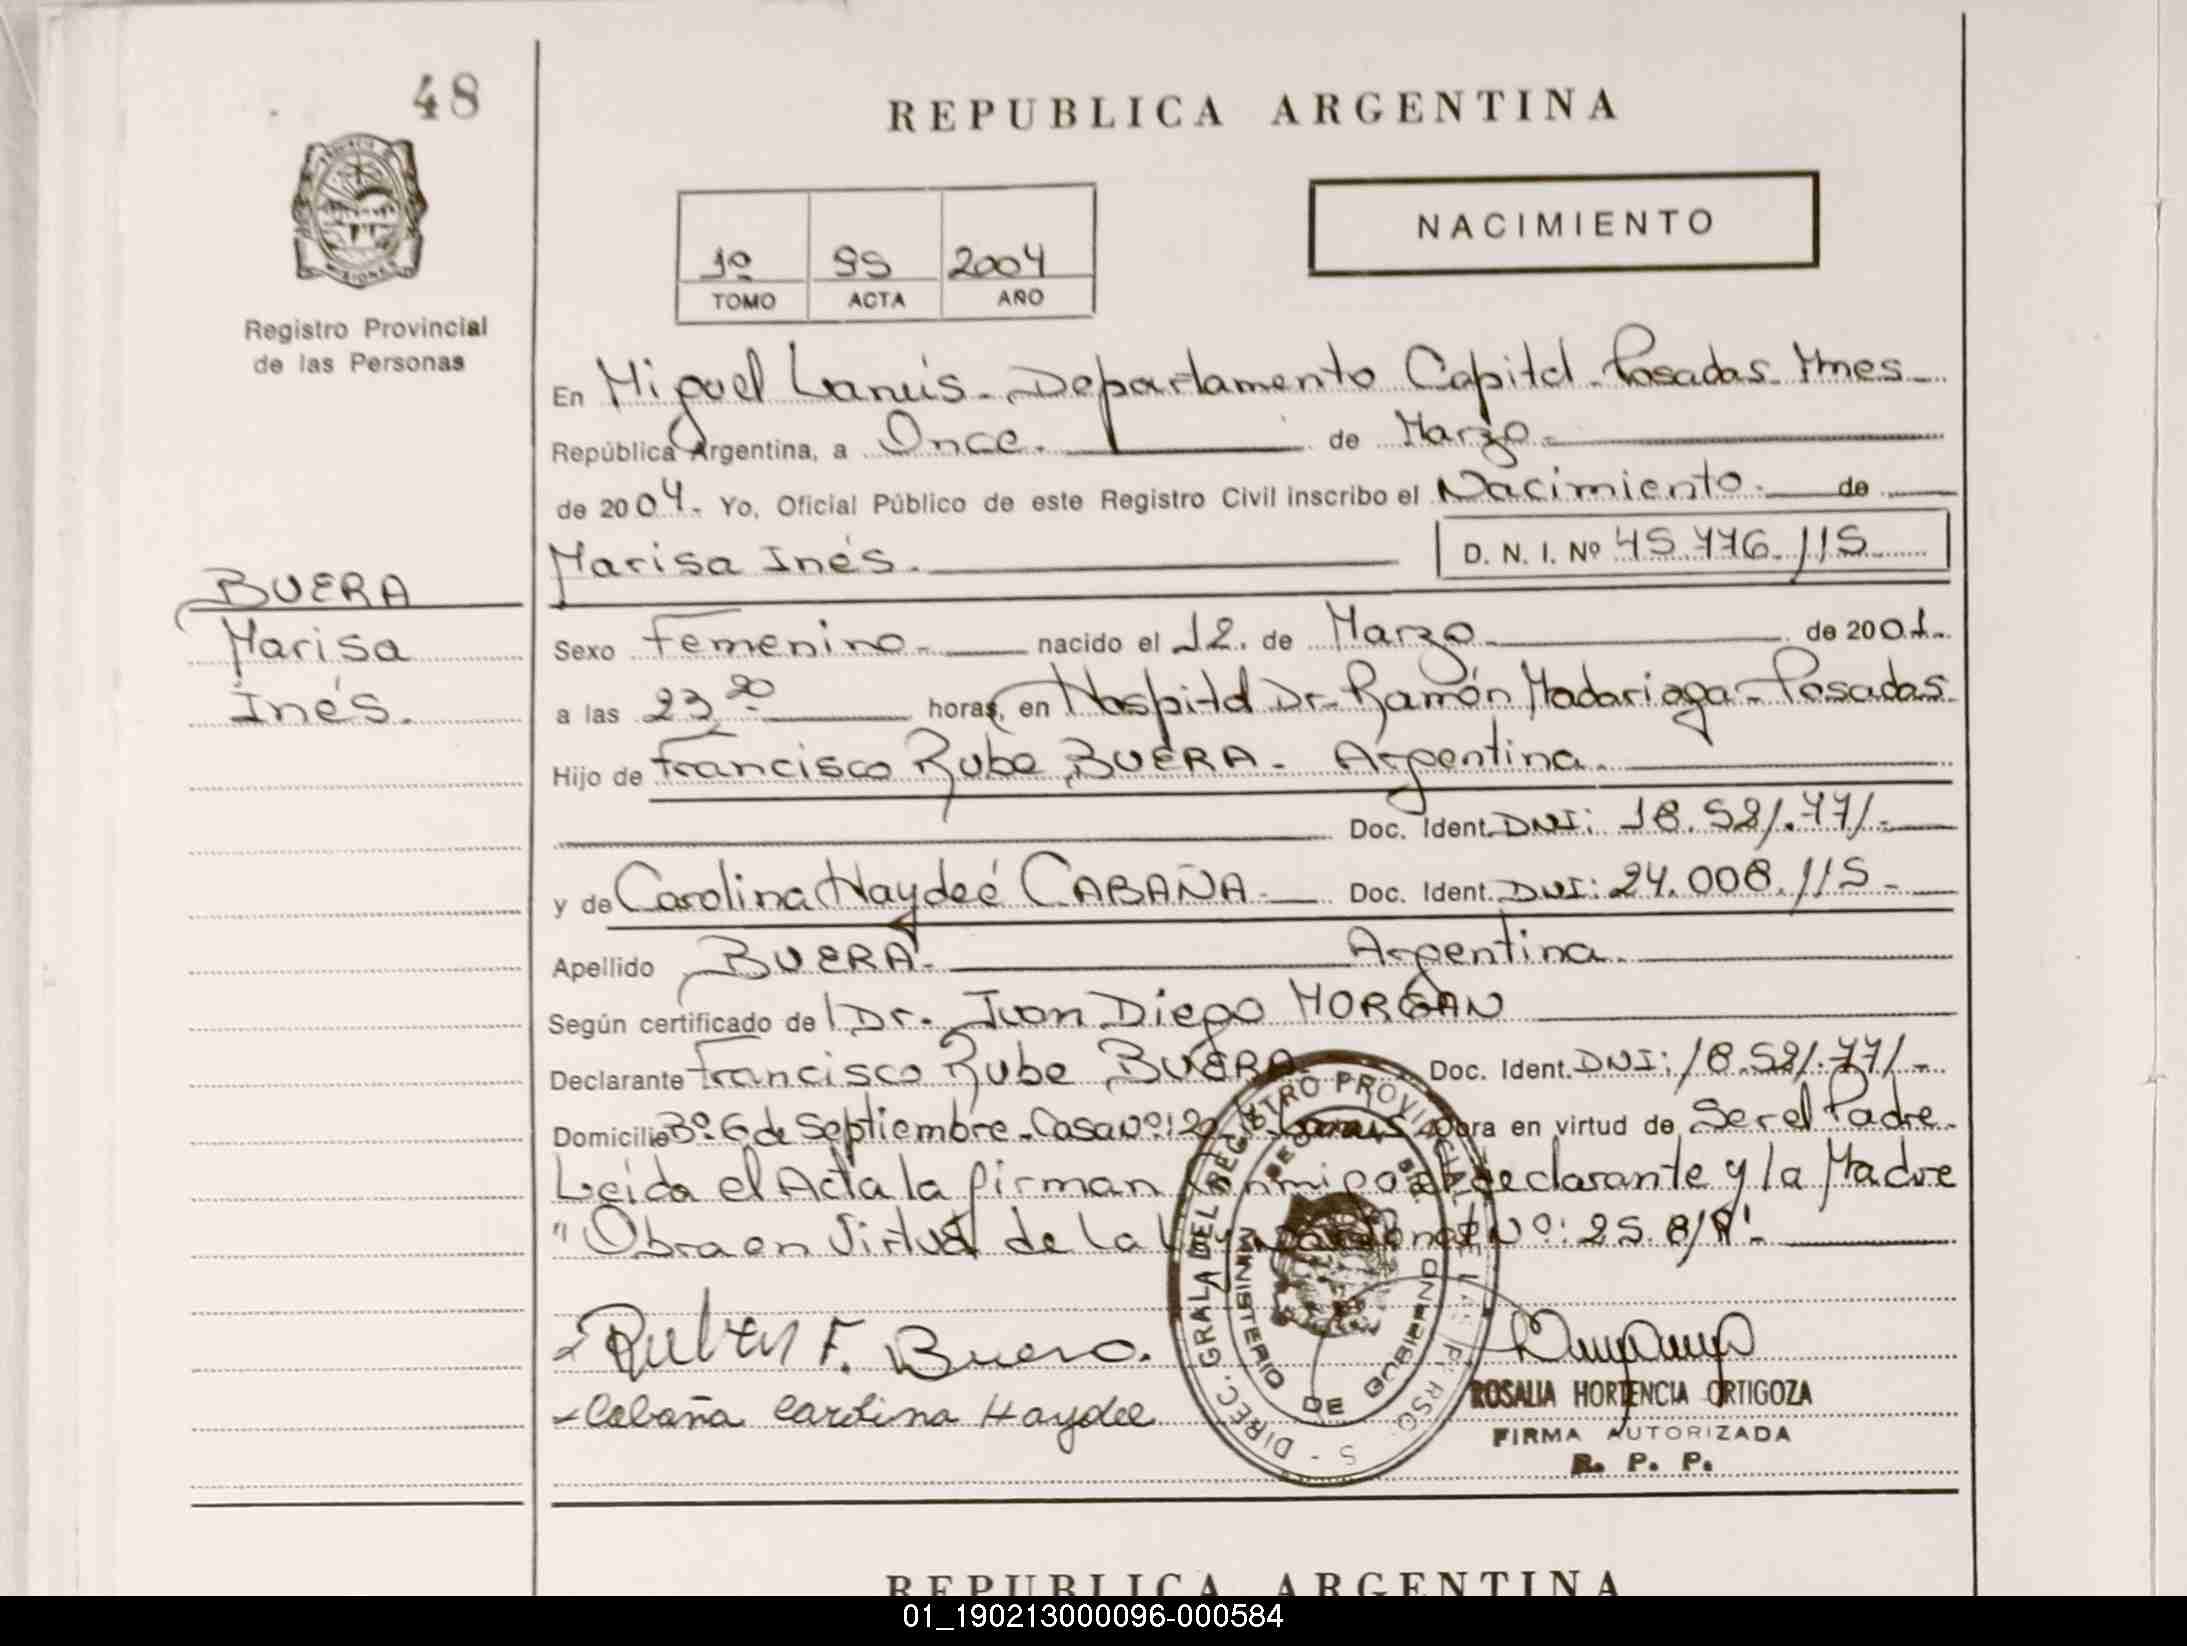 48
REPUBLICA ARGENTINA
NACIMIENTO
1º 95 2004
TOMO ACTA AÑO
Registro Provincial
de las Personas
En Miguel Lanús - Departamento Capital - Posadas - Mnes -
República Argentina, a Once. de Marzo -
de 2004. Yo, Oficial Público de este Registro Civil inscribo el Nacimiento. de
Marisa Inés. D. N. I. Nº 45.776.115
BUERA
Marisa
Inés.
Sexo Femenino - nacido el 12. de Marzo de 2001.
a las 23,20 horas, en Hospital Dr. Ramón Madariaga - Posadas
Hijo de Francisco Rube BUERA - Argentina.
Doc. Ident. DNI: 18.521.771 -
y de Carolina Haydeé CABAÑA - Doc. Ident. DNI: 24.008.115 -
Apellido BUERA - Argentina.
Según certificado de Dr. Juan Diego MORGAN
Declarante Francisco Rube BUERA - Doc. Ident. DNI: 18.521.771 -
Domicilio Bº 6 de Septiembre - Casa Nº: 20 Lanús Obra en virtud de Ser el Padre -
Leida el Acta la firman Conmigo el declarante y la Madre
"Obra en Virtud de la Ley Nacional Nº: 25.819" -
Ruben F. Buera.
Cabaña Carolina Haydee
DIREC. GRAL. DEL REGISTRO PROVINCIAL DE LAS PERSONAS
MINISTERIO DE GOBIERNO
ROSALIA HORTENCIA ORTIGOZA
FIRMA AUTORIZADA
R. P. P.
REPUBLICA ARGENTINA
01_190213000096-000584